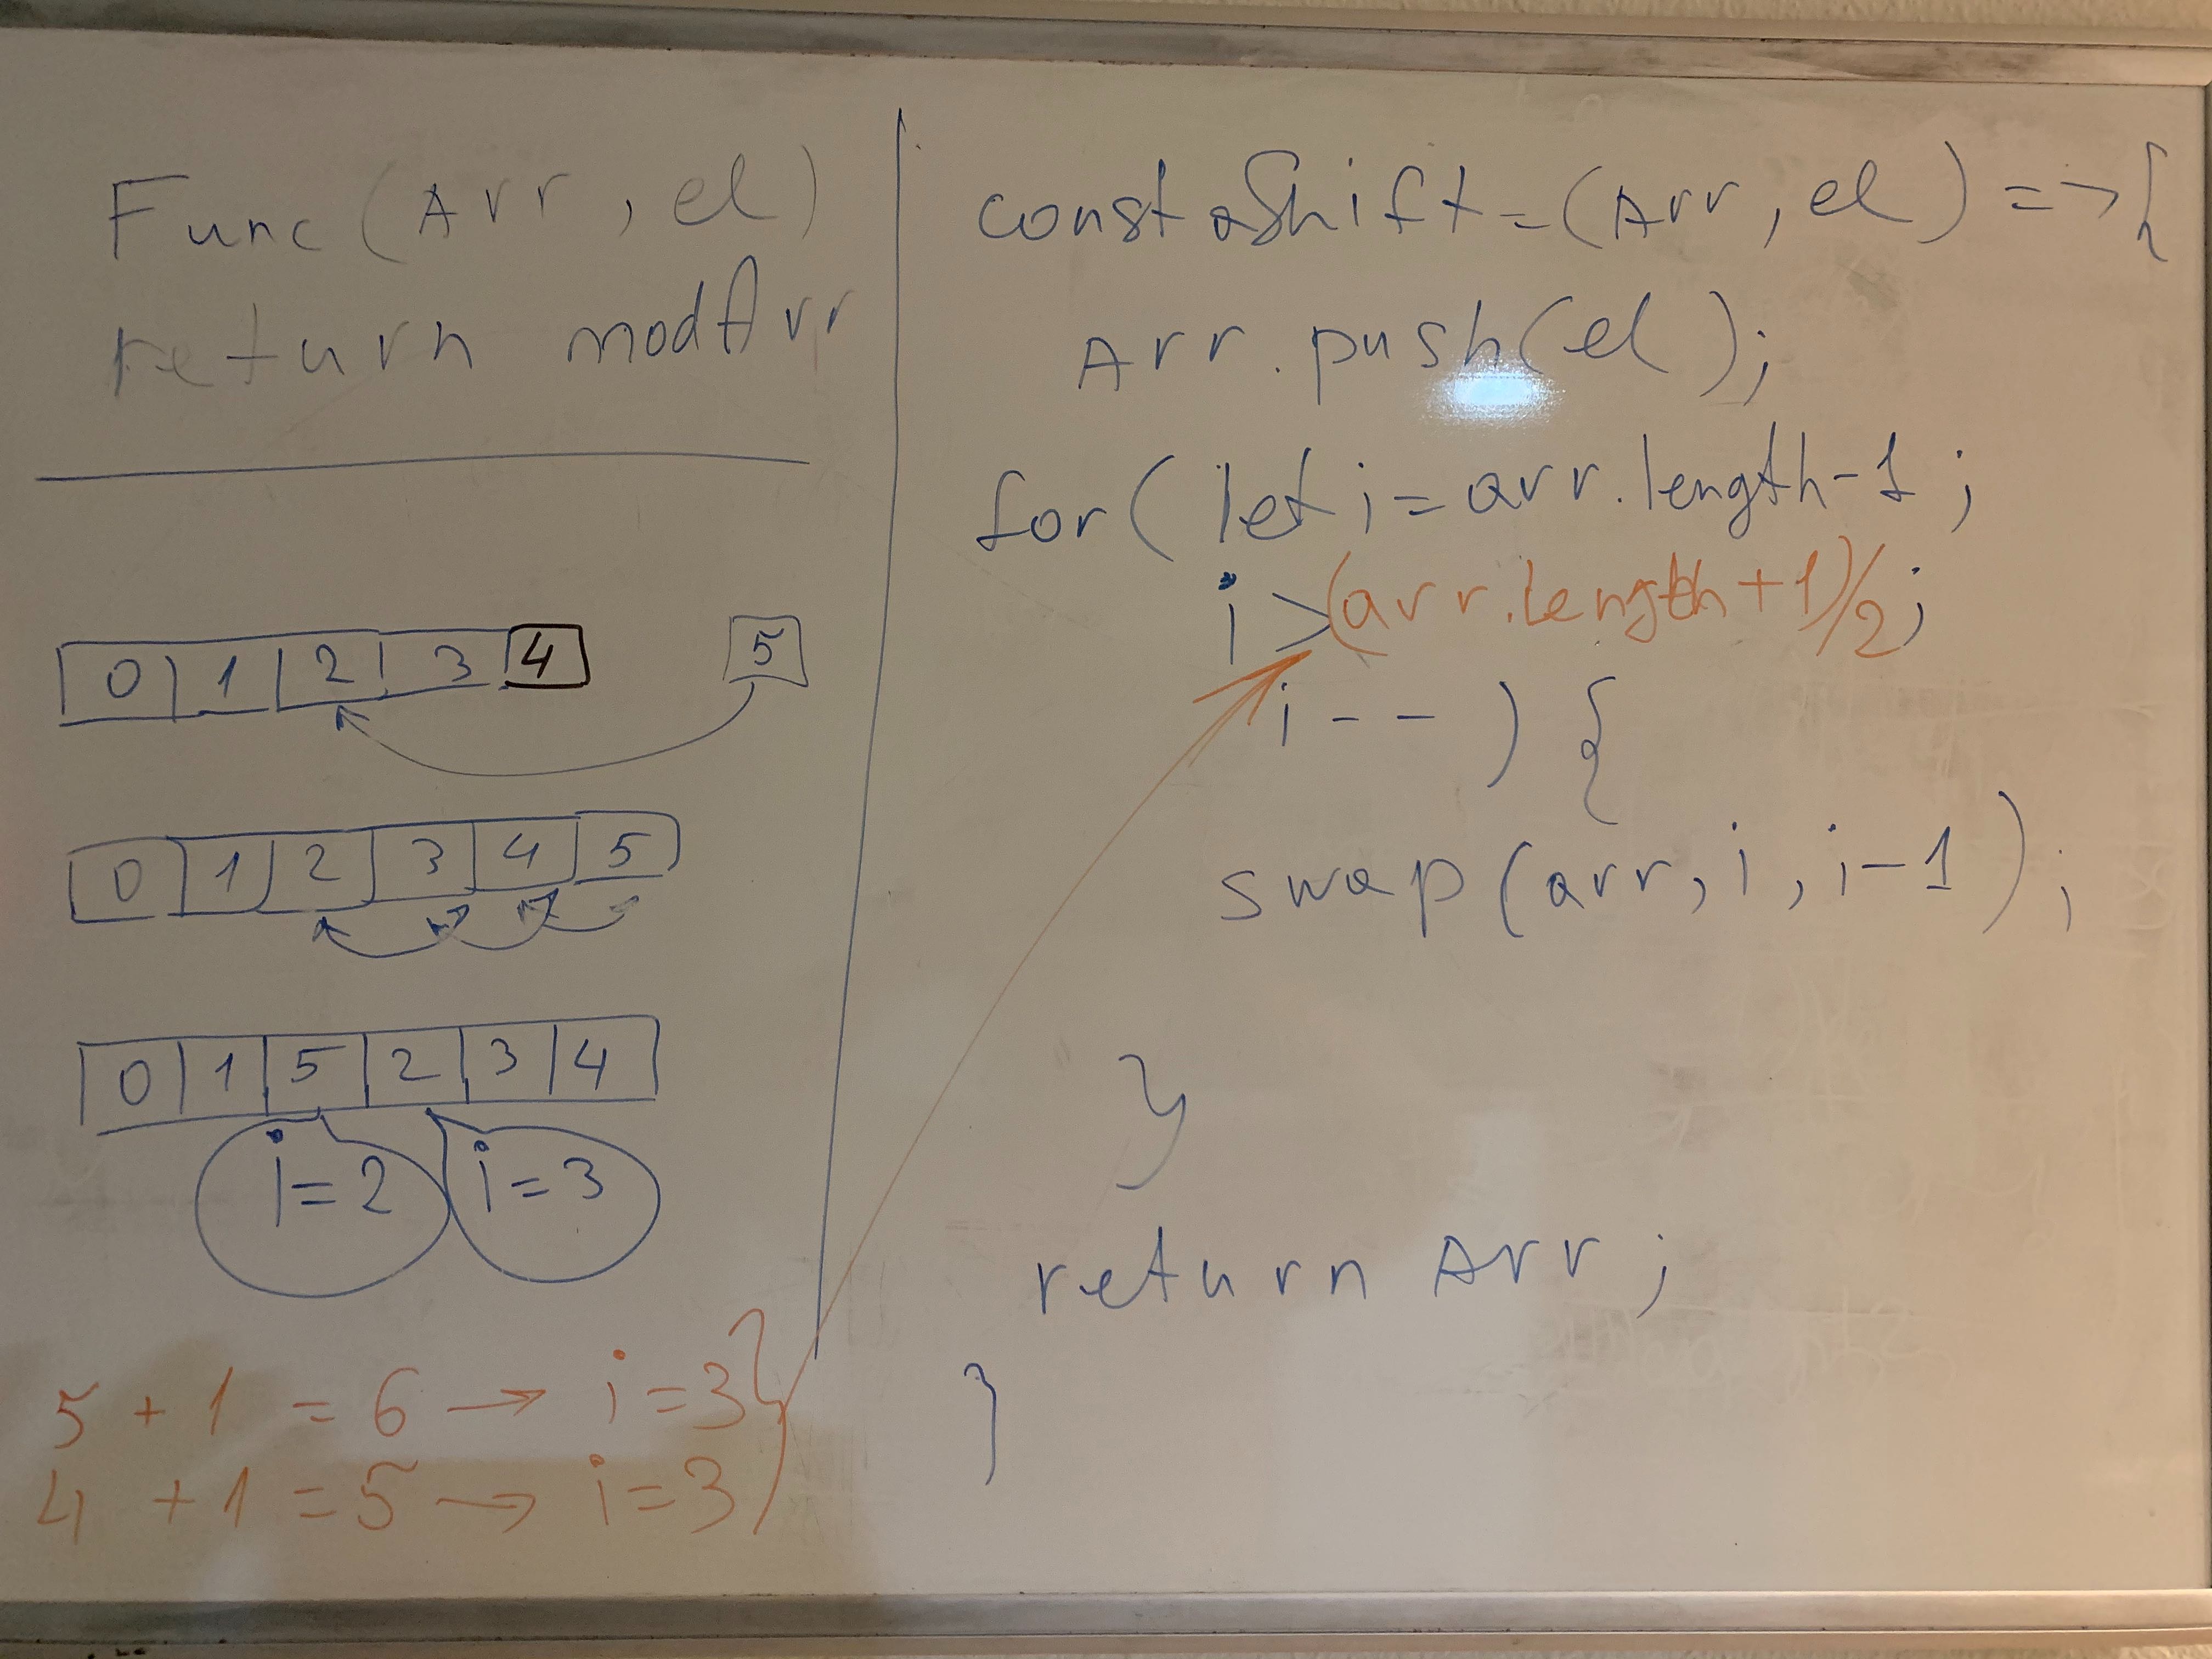 Func(Arr, el)
return modArr
0 1 2 3 4 5
0 1 2 3 4 5
0 1 5 2 3 4
i=2 i=3
5 + 1 = 6 → i=3
4 + 1 = 5 → i=3
const aShift=(Arr, el) => {
Arr.push(el);
for( let i=arr.length-1;
i >(arr.length+1)/2;
i--) {
swap(arr, i, i-1);
}
return Arr;
}